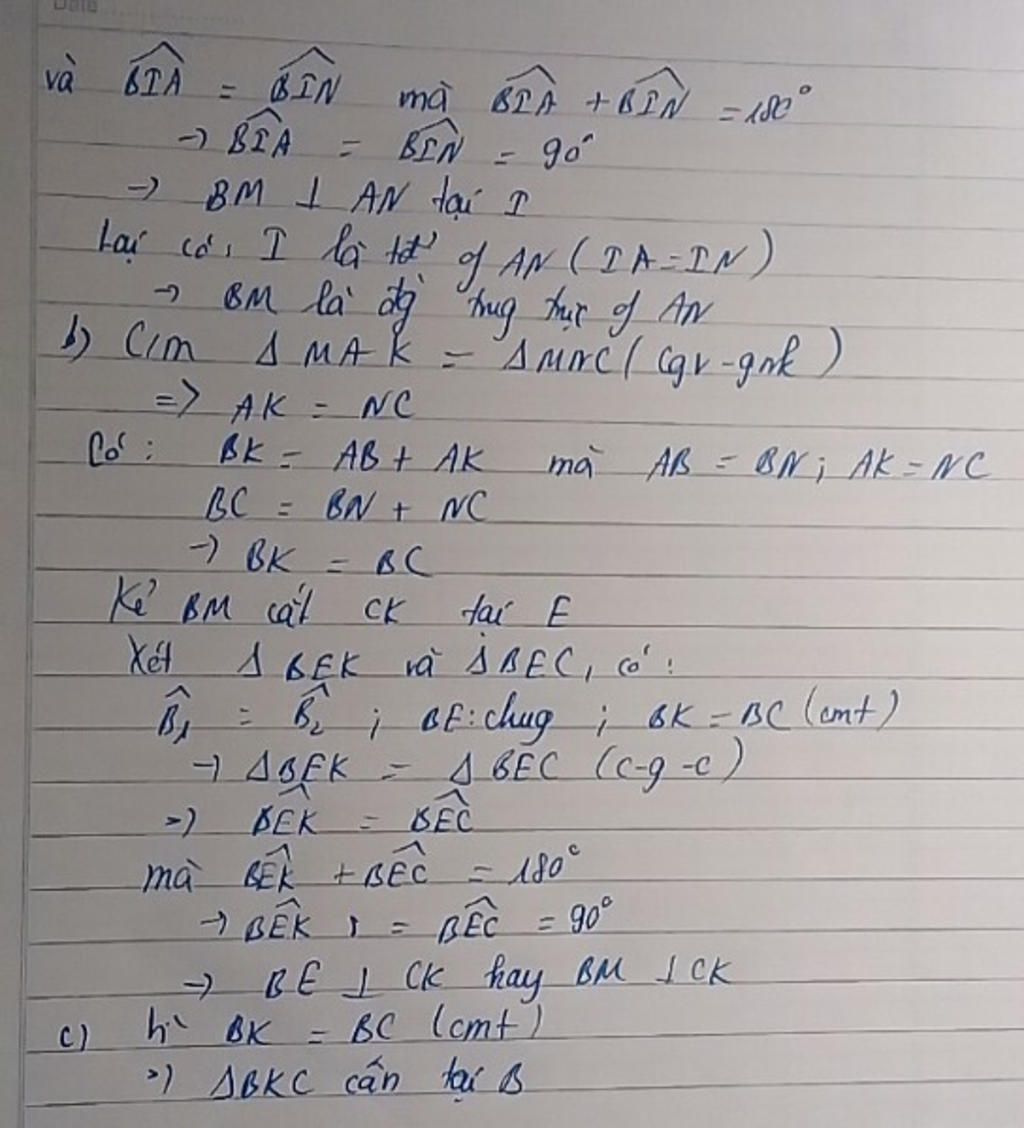 Date
và BIA = BIN mà BIA + BIN = 180°
→ BIA = BIN = 90°
→ BM ⊥ AN tại I
Lại có, I là tđ of AN (IA = IN)
→ BM là đg trug trực of AN
b) C/m Δ MAK = Δ MNC (cgv - gnk)
=> AK = NC
Có: BK = AB + AK mà AB = BN; AK = NC
BC = BN + NC
→ BK = BC
Kẻ BM cắt CK tại E
Xét Δ BEK và Δ BEC, có:
B₁ = B₂ ; BE: chug ; BK = BC (cmt)
→ Δ BEK = Δ BEC (c-g-c)
=> BEK = BEC
mà BEK + BEC = 180°
→ BEK = BEC = 90°
→ BE ⊥ CK hay BM ⊥ CK
c) Vì BK = BC (cmt)
=> Δ BKC cân tại B